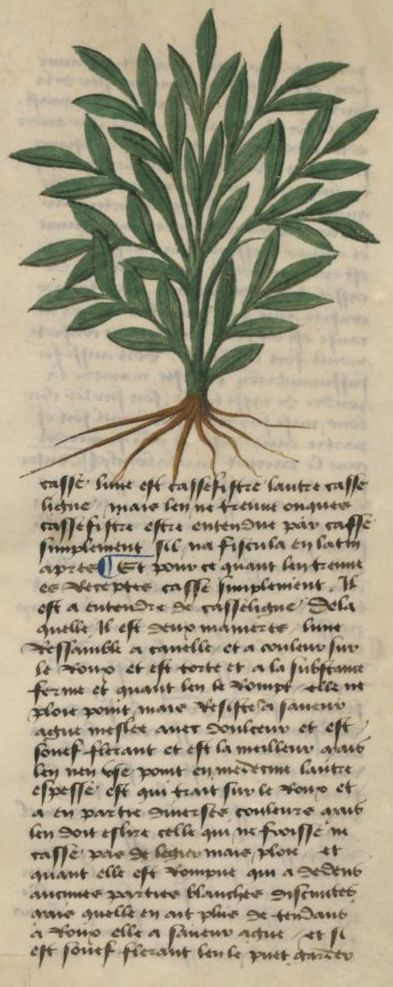 casse lune est cassefistre lautre casse
ligne mais len ne treuue onques
cassefistre estre entendue par casse
simplement sil na fiscula en latin
apres ¶ Et pour ce quant len treuue
es Receptes casse simplement Il
est a entendre de casseligne Dela
quelle Il est deux manieres lune
Ressamble a canelle et a couleur sur
le Roux et est torte et a la substance
ferme et quant len le Rompt elle ne
ploie point mais Resiste a saueur
ague meslee auec doulceur et est
souef flerant et est la meilleur mais
len nen vse point en medecine lautre
espesse est qui trait sur le Roux et
a en partie diuerses couleurs mais
len doit eslire celle qui ne froisse ne
casse pas de legier mais ploie et
quant elle est Rompue qui a dedens
aucunes parties blanches distinctes
mais quelle en ait plus de tendans
a Roux elle a saueur ague et si
est souef flerant len le puet garder